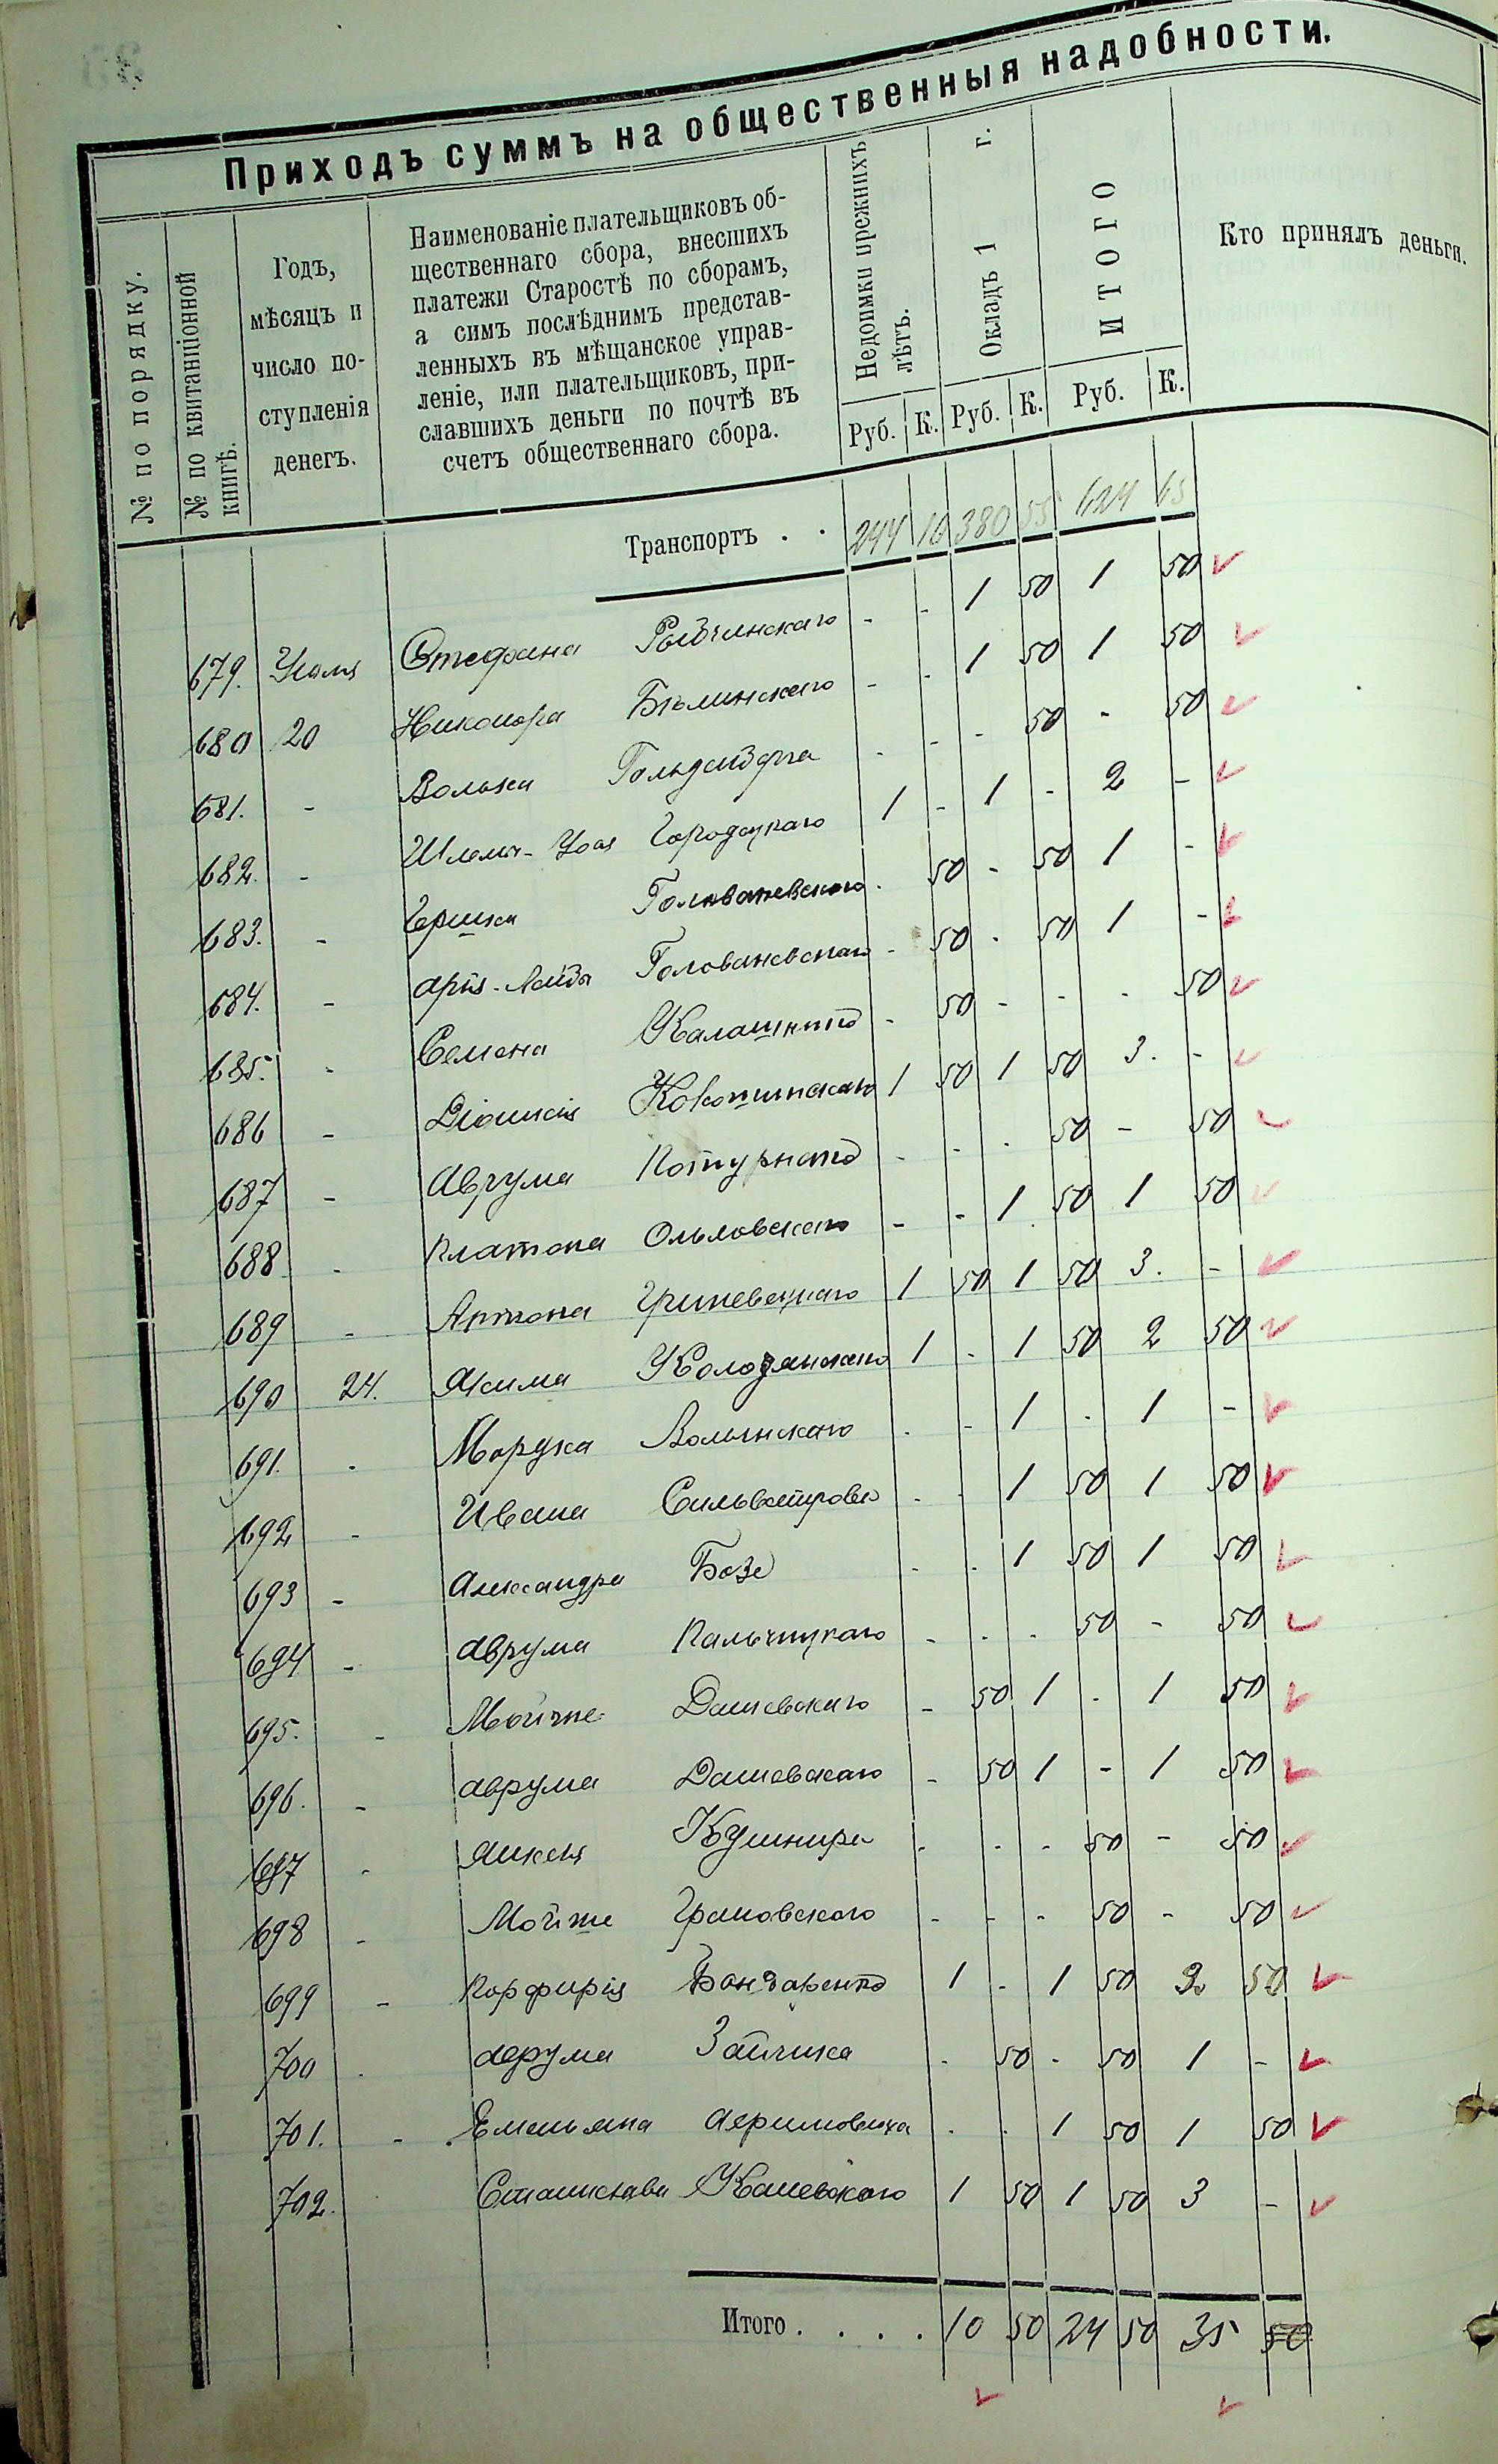 Приходъ суммъ на общественныя надобности.
№ по порядку.
№ по квитанціонной
книгѣ.
Годъ,
мѣсяцъ и
число по-
ступленія
денегъ.
Наименованіе плательщиковъ об-
щественнаго сбора, внесшихъ
платежи Старостѣ по сборамъ,
а симъ послѣднимъ представ-
ленныхъ въ мѣщанское управ-
леніе, или плательщиковъ, при-
славшихъ деньги по почтѣ въ
счетъ общественнаго сбора.
Недоимки прежнихъ
лѣтъ.
Окладъ 1 г.
ИТОГО
Кто принялъ деньги.
Руб. К. Руб. К. Руб. К.
Транспортъ . . 244 10 380 55 624 65
679. Стефана - - 1 50 1 50
680 20 Никонора Бѣлинскаго - - 1 50 1 50
681. - Волька - - - 50 - 50
682. - Городецкаго 1 - 1 - 2 -
683. - Гершка Голованевскаго - 50 - 50 1 -
684. - Арія-Лейбы Голованевскаго - 50 - 50 1 -
685. - Семена - 50 - - - 50
686 - Діонисія 1 50 1 50 3. -
687 - Аврума - - - 50 - 50
688 - Платона - - 1 50 1 50
689 - Антона Гриневецкаго 1 50 1 50 3. -
690 24. Якима 1 - 1 50 2 50
691. - Мордка Волынскаго - - 1 - 1 -
692 - Ивана - - 1 50 1 50
693 - Александра Бозе - - 1 50 1 50
694 - Аврума - - - 50 - 50
695. - Дашевскаго - 50 1 - 1 50
696. - Аврума Дашевскаго - 50 1 - 1 50
697 - Янкеля Кушнира - - - 50 - 50
698 - Мойше Грановскаго - - - 50 - 50
699 - Порфирія Бондаренко 1 - 1 50 2 50
700 - Аврума Зайчика - 50 - 50 1 -
701. - Емельяна - - 1 50 1 50
702. Станислава 1 50 1 50 3 -
Итого . . . . 10 50 24 50 35